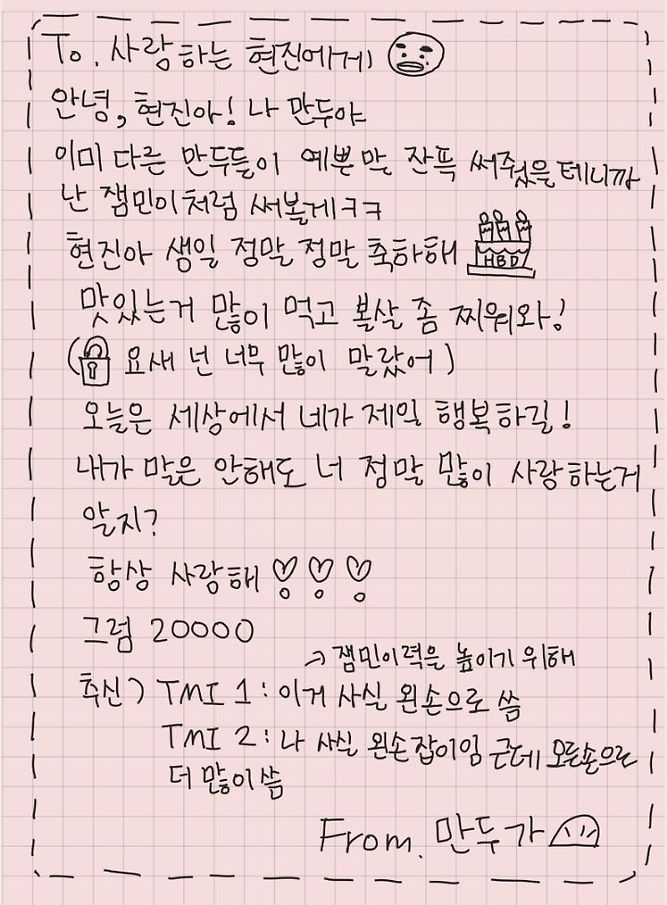 To. 사랑하는 현진에게
안녕, 현진아! 나 만두야
이미 다른 만두들이 예쁜 말 잔뜩 써줬을테니까
난 잼민이처럼 써볼게ㅋㅋ
현진아 생일 정말 정말 축하해
HBD
맛있는거 많이 먹고 볼살 좀 찌워와!
( 요새 넌 너무 많이 말랐어)
오늘은 세상에서 네가 제일 행복하길!
내가 말은 안해도 너 정말 많이 사랑하는거
알지?
항상 사랑해
그럼 20000
→ 잼민이력을 높이기 위해
추신) TMI 1: 이거 사실 왼손으로 씀
TMI 2: 나 사실 왼손잡이임 근데 오른손으로
더 많이 씀
From. 만두가